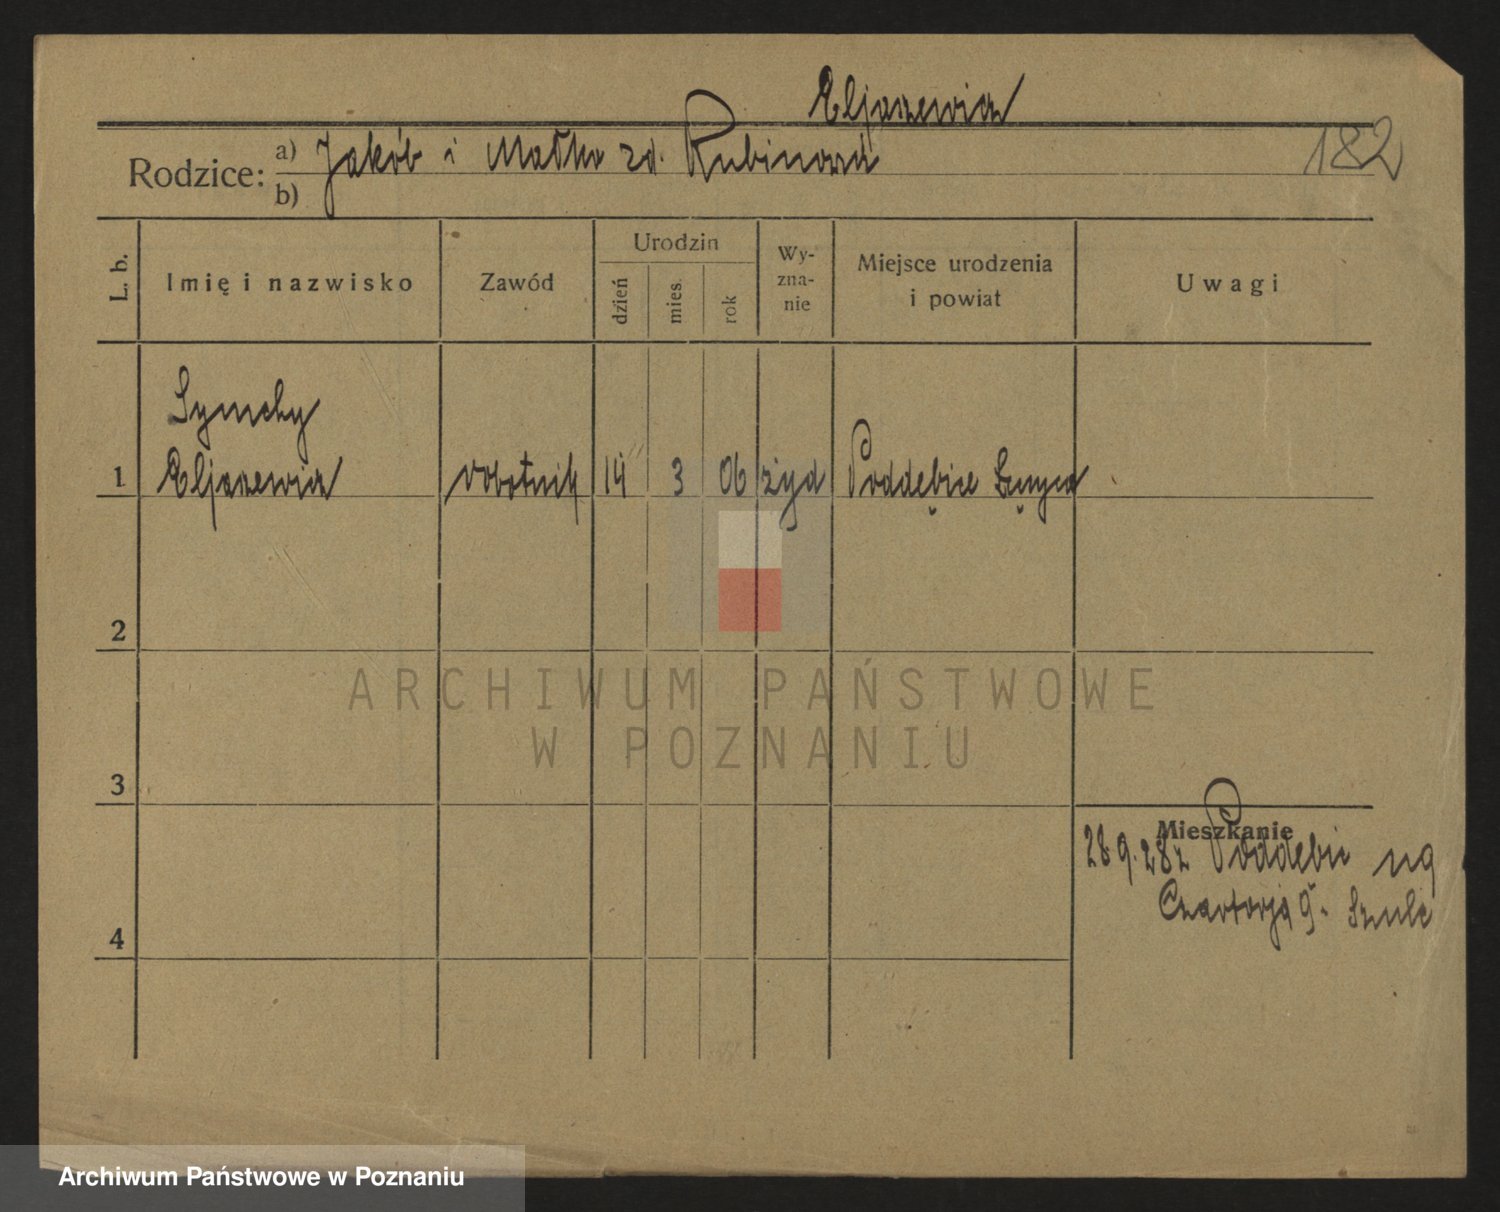 Eljaszewicz
Rodzice: a) Jakób i Małka zd. Rubinowicz
b)
182
L. b.
Imię i nazwisko
Zawód
Urodzin
dzień
mies.
rok
Wy-
zna-
nie
Miejsce urodzenia
i powiat
Uwagi
Symchy
1 Eljaszewicz robotnik 14 3 06 żyd Poddębice Łęczyca
2
3
4
Mieszkanie
28.9.28 z Poddębic
Czartorja 9 Szulc
ARCHIWUM PAŃSTWOWE
W POZNANIU
Archiwum Państwowe w Poznaniu